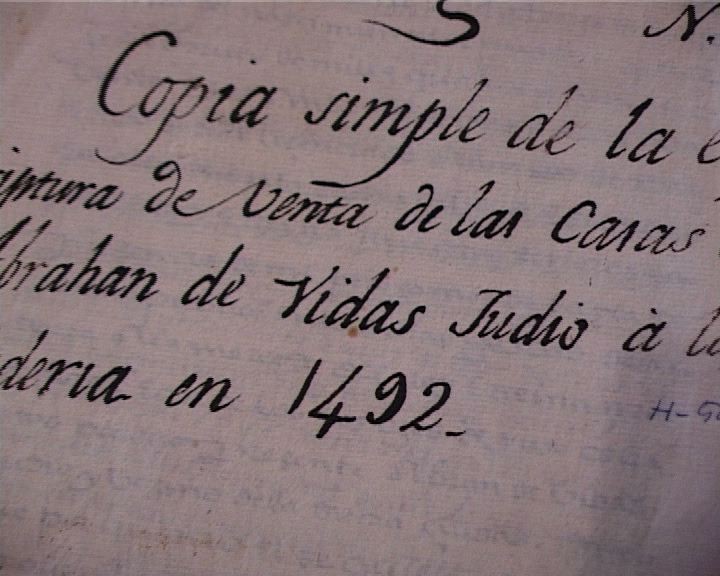 N.
Copia simple de la e
iptura de Venta de las Casas
Abrahan de Vidas Judio à la
deria en 1492.
H-